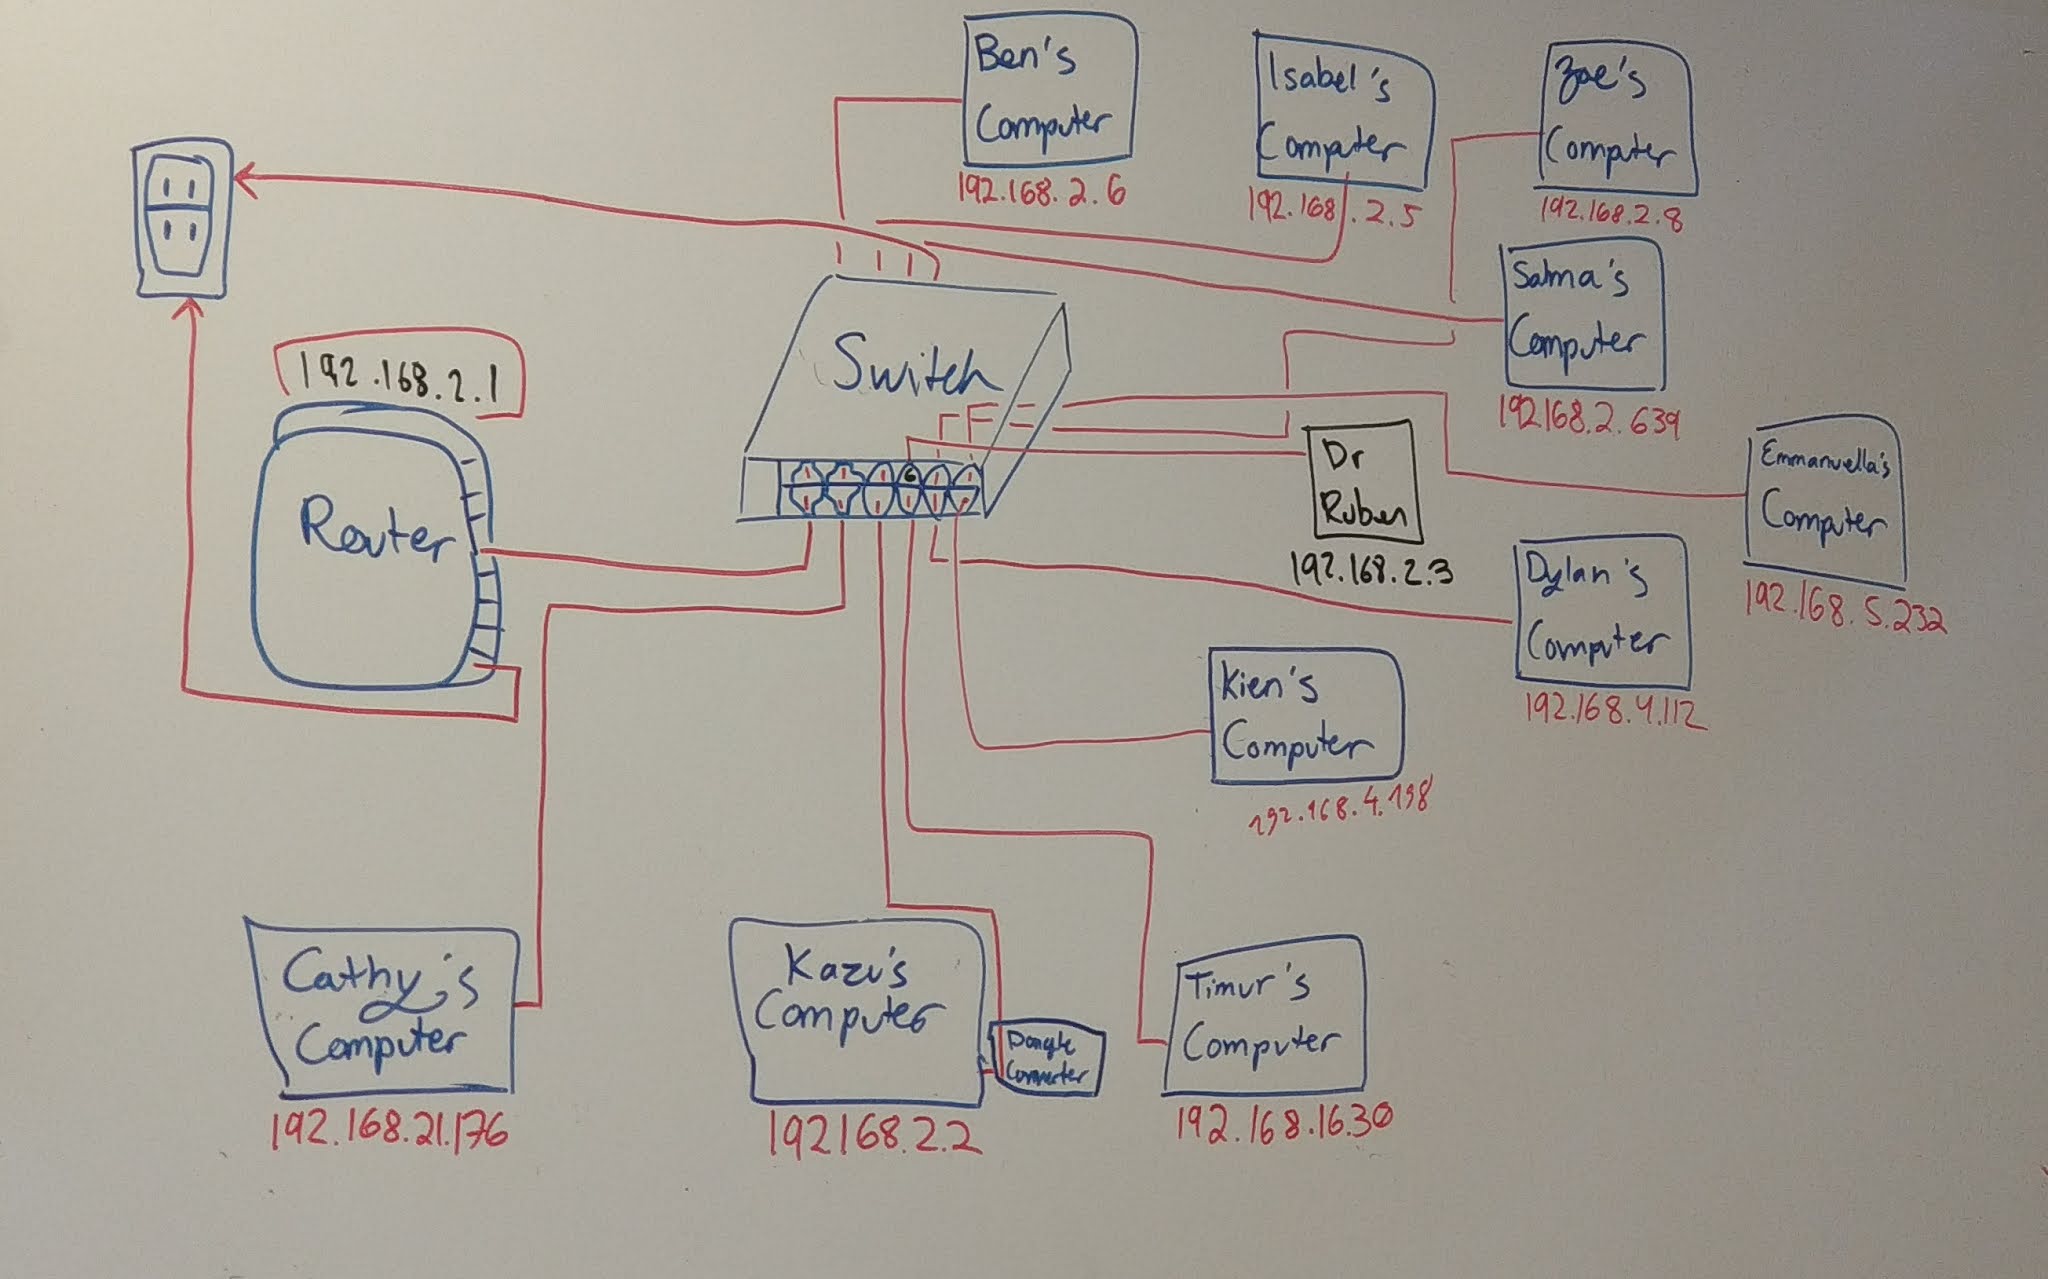 Ben's
Computer
192.168.2.6
Isabel's
Computer
192.168.2.5
Zoe's
Computer
192.168.2.8
Salma's
Computer
192168.2.639
192.168.2.1
Router
Switch
6
Dr
Ruben
192.168.2.3
Emmanuella's
Computer
192.168.5.232
Dylan's
Computer
192.168.4.112
Kien's
Computer
192.168.4.198
Cathy's
Computer
192.168.21.176
Kazu's
Computer
192168.2.2
Dongle
Converter
Timur's
Computer
192.168.16.30